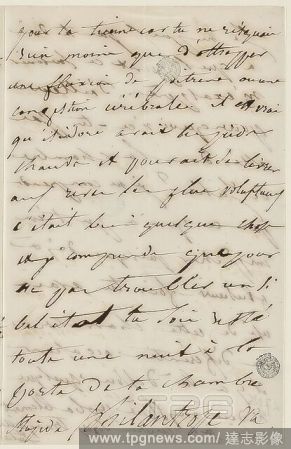 pour ta tienne car tu ne risquais
rien moins que d'attraper
une fluxion de poitrine ou une
congestion cérébrale il est vrai
qu'Isidore avait les pieds
chauds et pouvait se livrer
aux rêves les plus voluptueux
c'était là quelque chose
et je comprends que pour
ne pas troubler un si
bel état tu sois resté
toute une nuit à la
porte de ta chambre
www.tpgnews.com / 達志影像